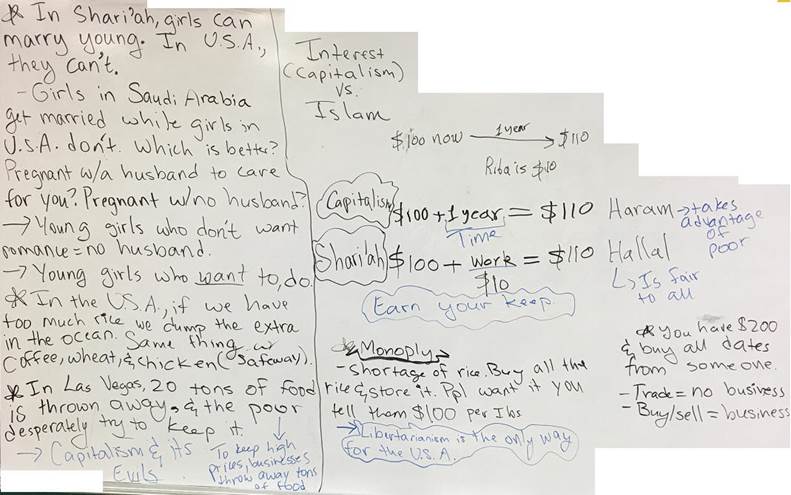 * In Shari'ah, girls can
marry young. In U.S.A.,
they can't.
- Girls in Saudi Arabia
get married while girls in
U.S.A. don't. Which is better?
Pregnant w/a husband to care
for you? Pregnant w/no husband?
→ Young girls who don't want
romance = no husband.
→ Young girls who want to, do.
* In the U.S.A., if we have
too much rice we dump the extra
in the ocean. Same thing w/
Coffee, wheat, & chicken (Safeway).
* In Las Vegas, 20 tons of food
is thrown away, & the poor
desperately try to keep it.
→ Capitalism & its
Evils.
To keep high
prices, businesses
throw away tons
of food
Interest
(Capitalism)
vs.
Islam
$100 now 1 year → $110
Riba is $10
Capitalism $100 + 1 year = $110 Haram → takes
advantage
of
poor
Time
Shari'ah $100 + work = $110 Hallal
$10
↳ Is fair
to all
Earn your keep
* Monoply
- Shortage of rice. Buy all the
rice & store it. Ppl want it you
tell them $100 per lbs
→ Libertarianism is the only way
for the U.S.A.
* You have $200
& buy all dates
from someone.
- Trade = no business
- Buy/sell = business